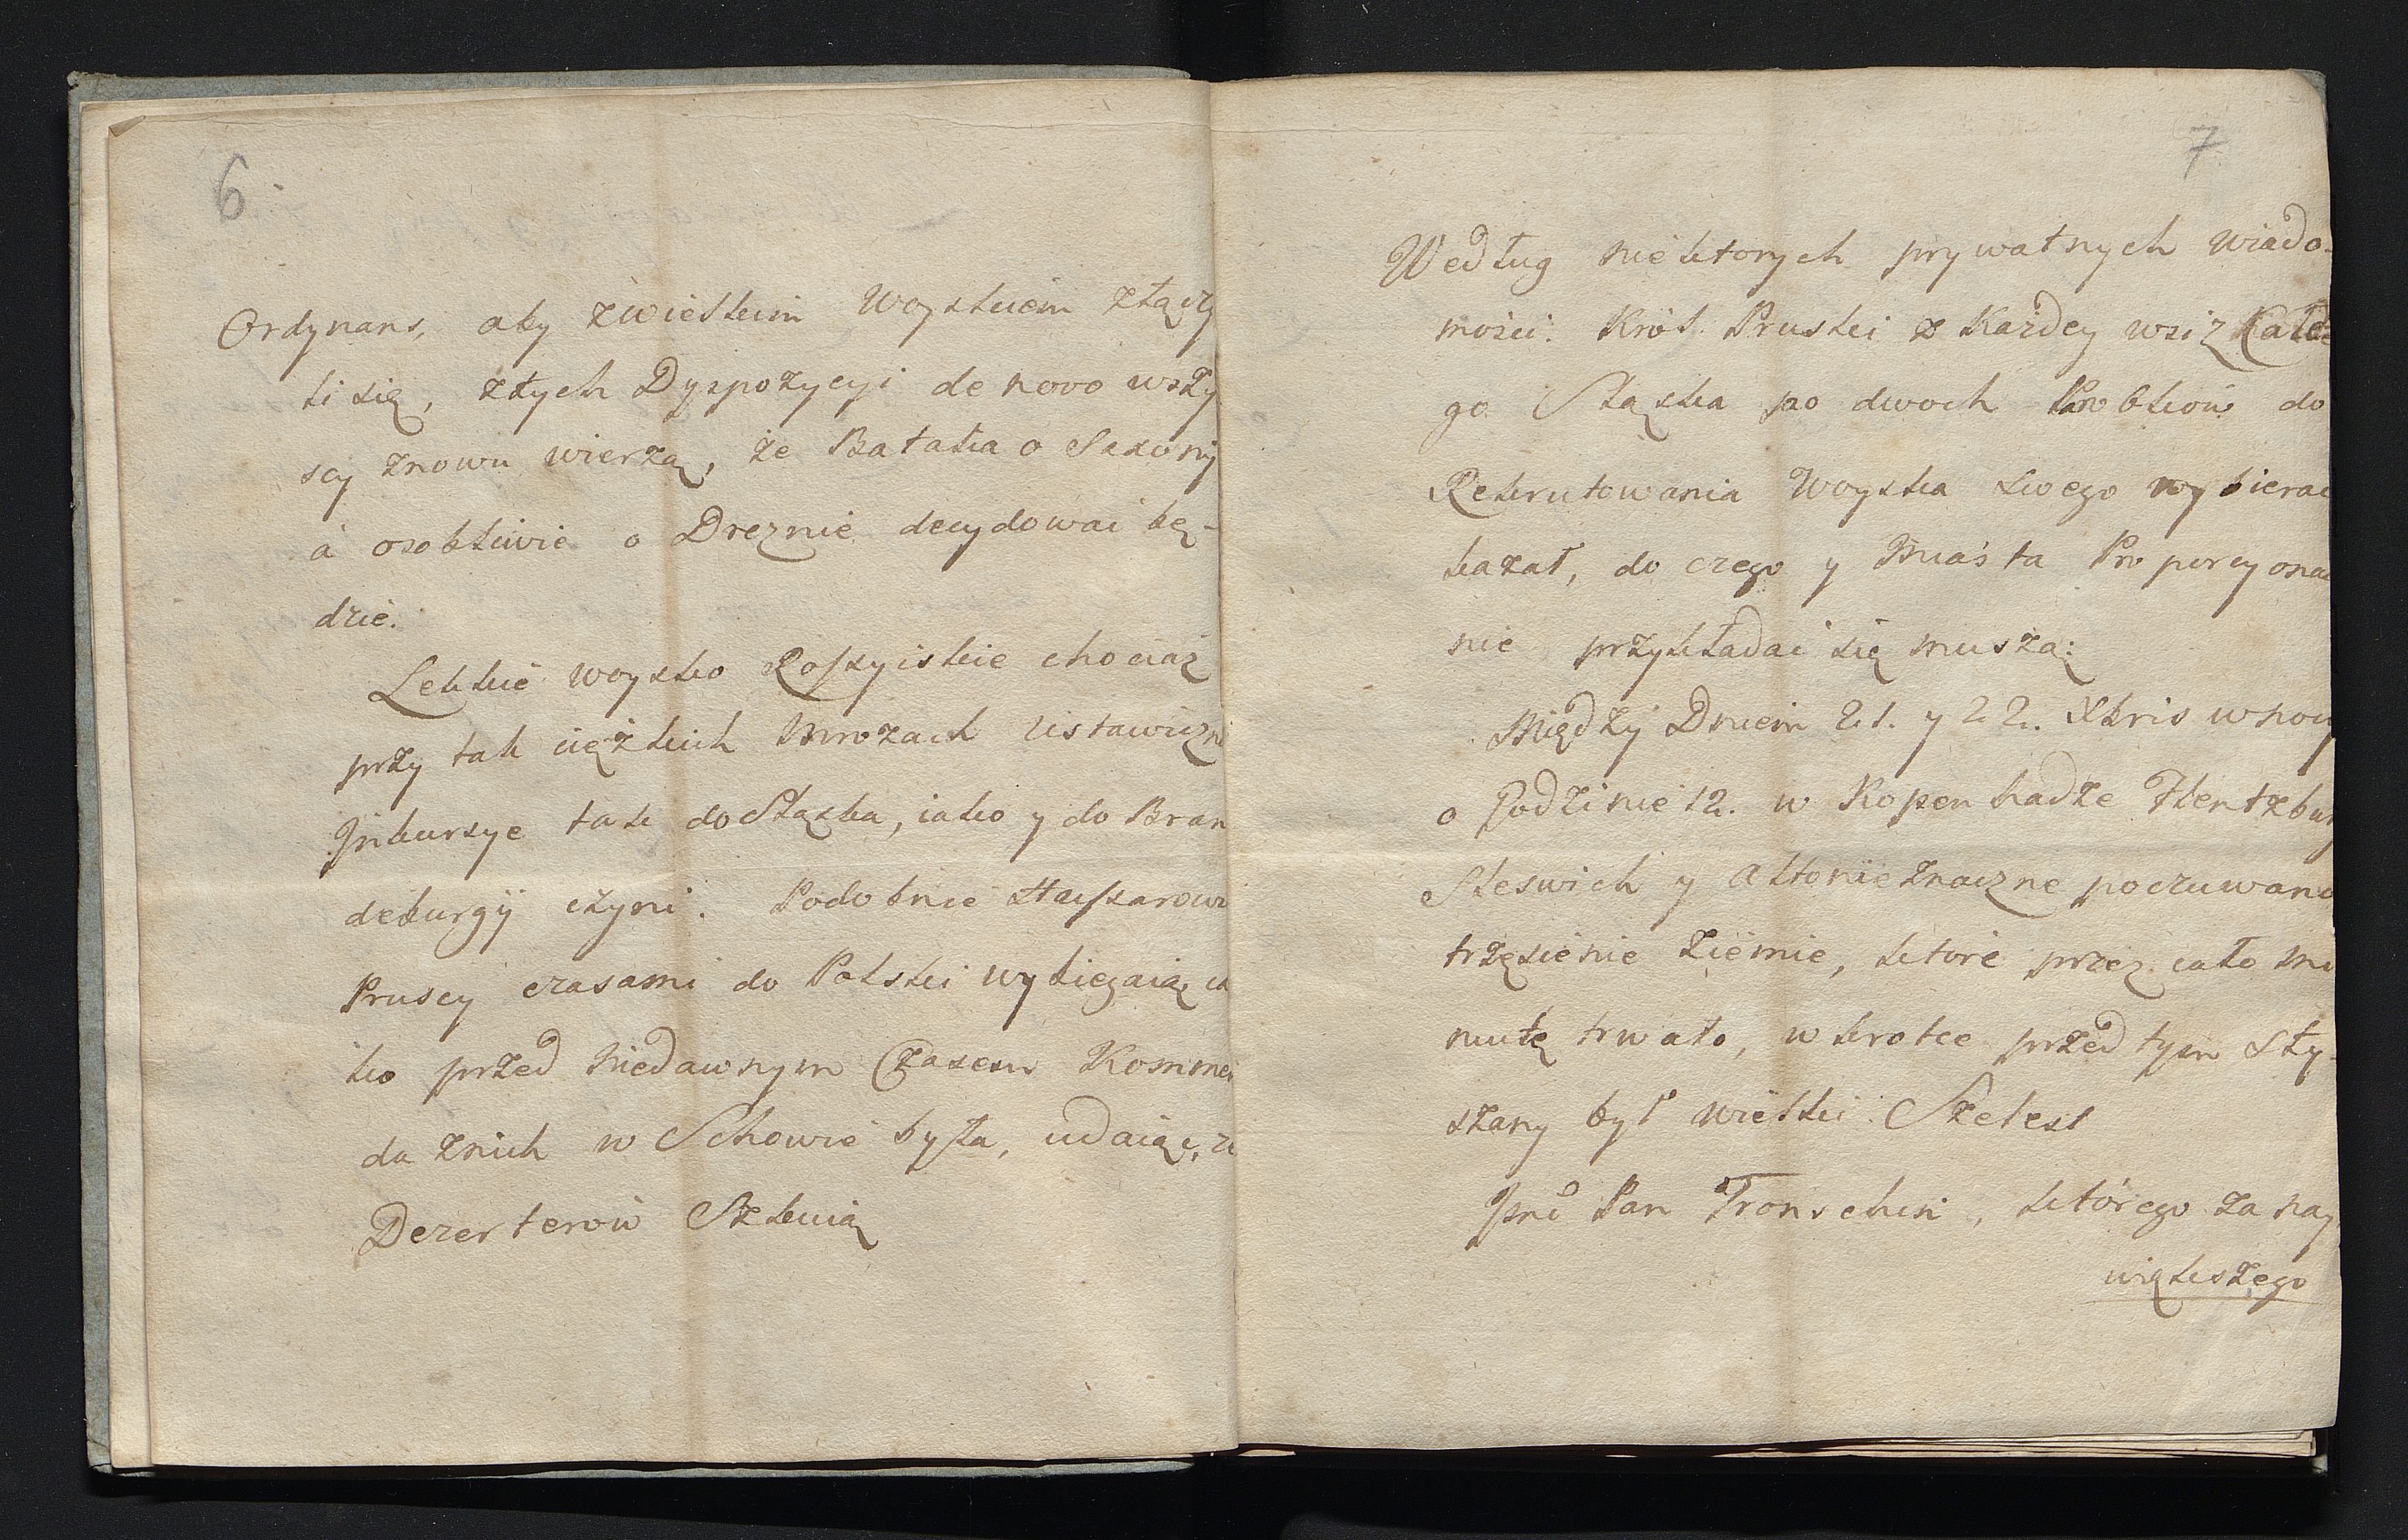 6
Ordynans, aby zwielkim Woyskiem złączy
li się, ztych Dyspozycyi de novo wszy
scy znowu wierzą, że Batalia o Saxonij
á osobliwie o Dreznie decydować bę-
dzie.
Lekkie woysko Rossyiskie chociaż
przy tak ciężkich mrozach ustawiczne
Jnkursye tak do Sląska, iako y do Bran
deburgij czyni. Podobnie Hussarowie
Pruscy czasami do Polski wybiegaią ia
ko przed niedawnym Czasem Kommen
da znich w Schowie była, udaiąc, że
Dezerterów Szkuią
7
Według niektorych prywatnych wiado-
mości. Król Pruski z Każdey wsi z Całe
go Sląska po dwoch Parobkow do
Rekrutowania Woyska swego wybierać
kazał, do czego y Miasta Proporcyonal
nie przykładać się muszą:
Między Dniem 21. y 22. Xbris wnocy
o Godzinie 12. w Kopenhadze Flentzburg
Sleswich y Altonie znaczne poczuwano
trzęsienie ziemie, które przez cało mi
nutę trwało, wkrotce przed tym sły-
szany był wielki Szelest
Jmć Pan Tronschin, którego za nay
większego